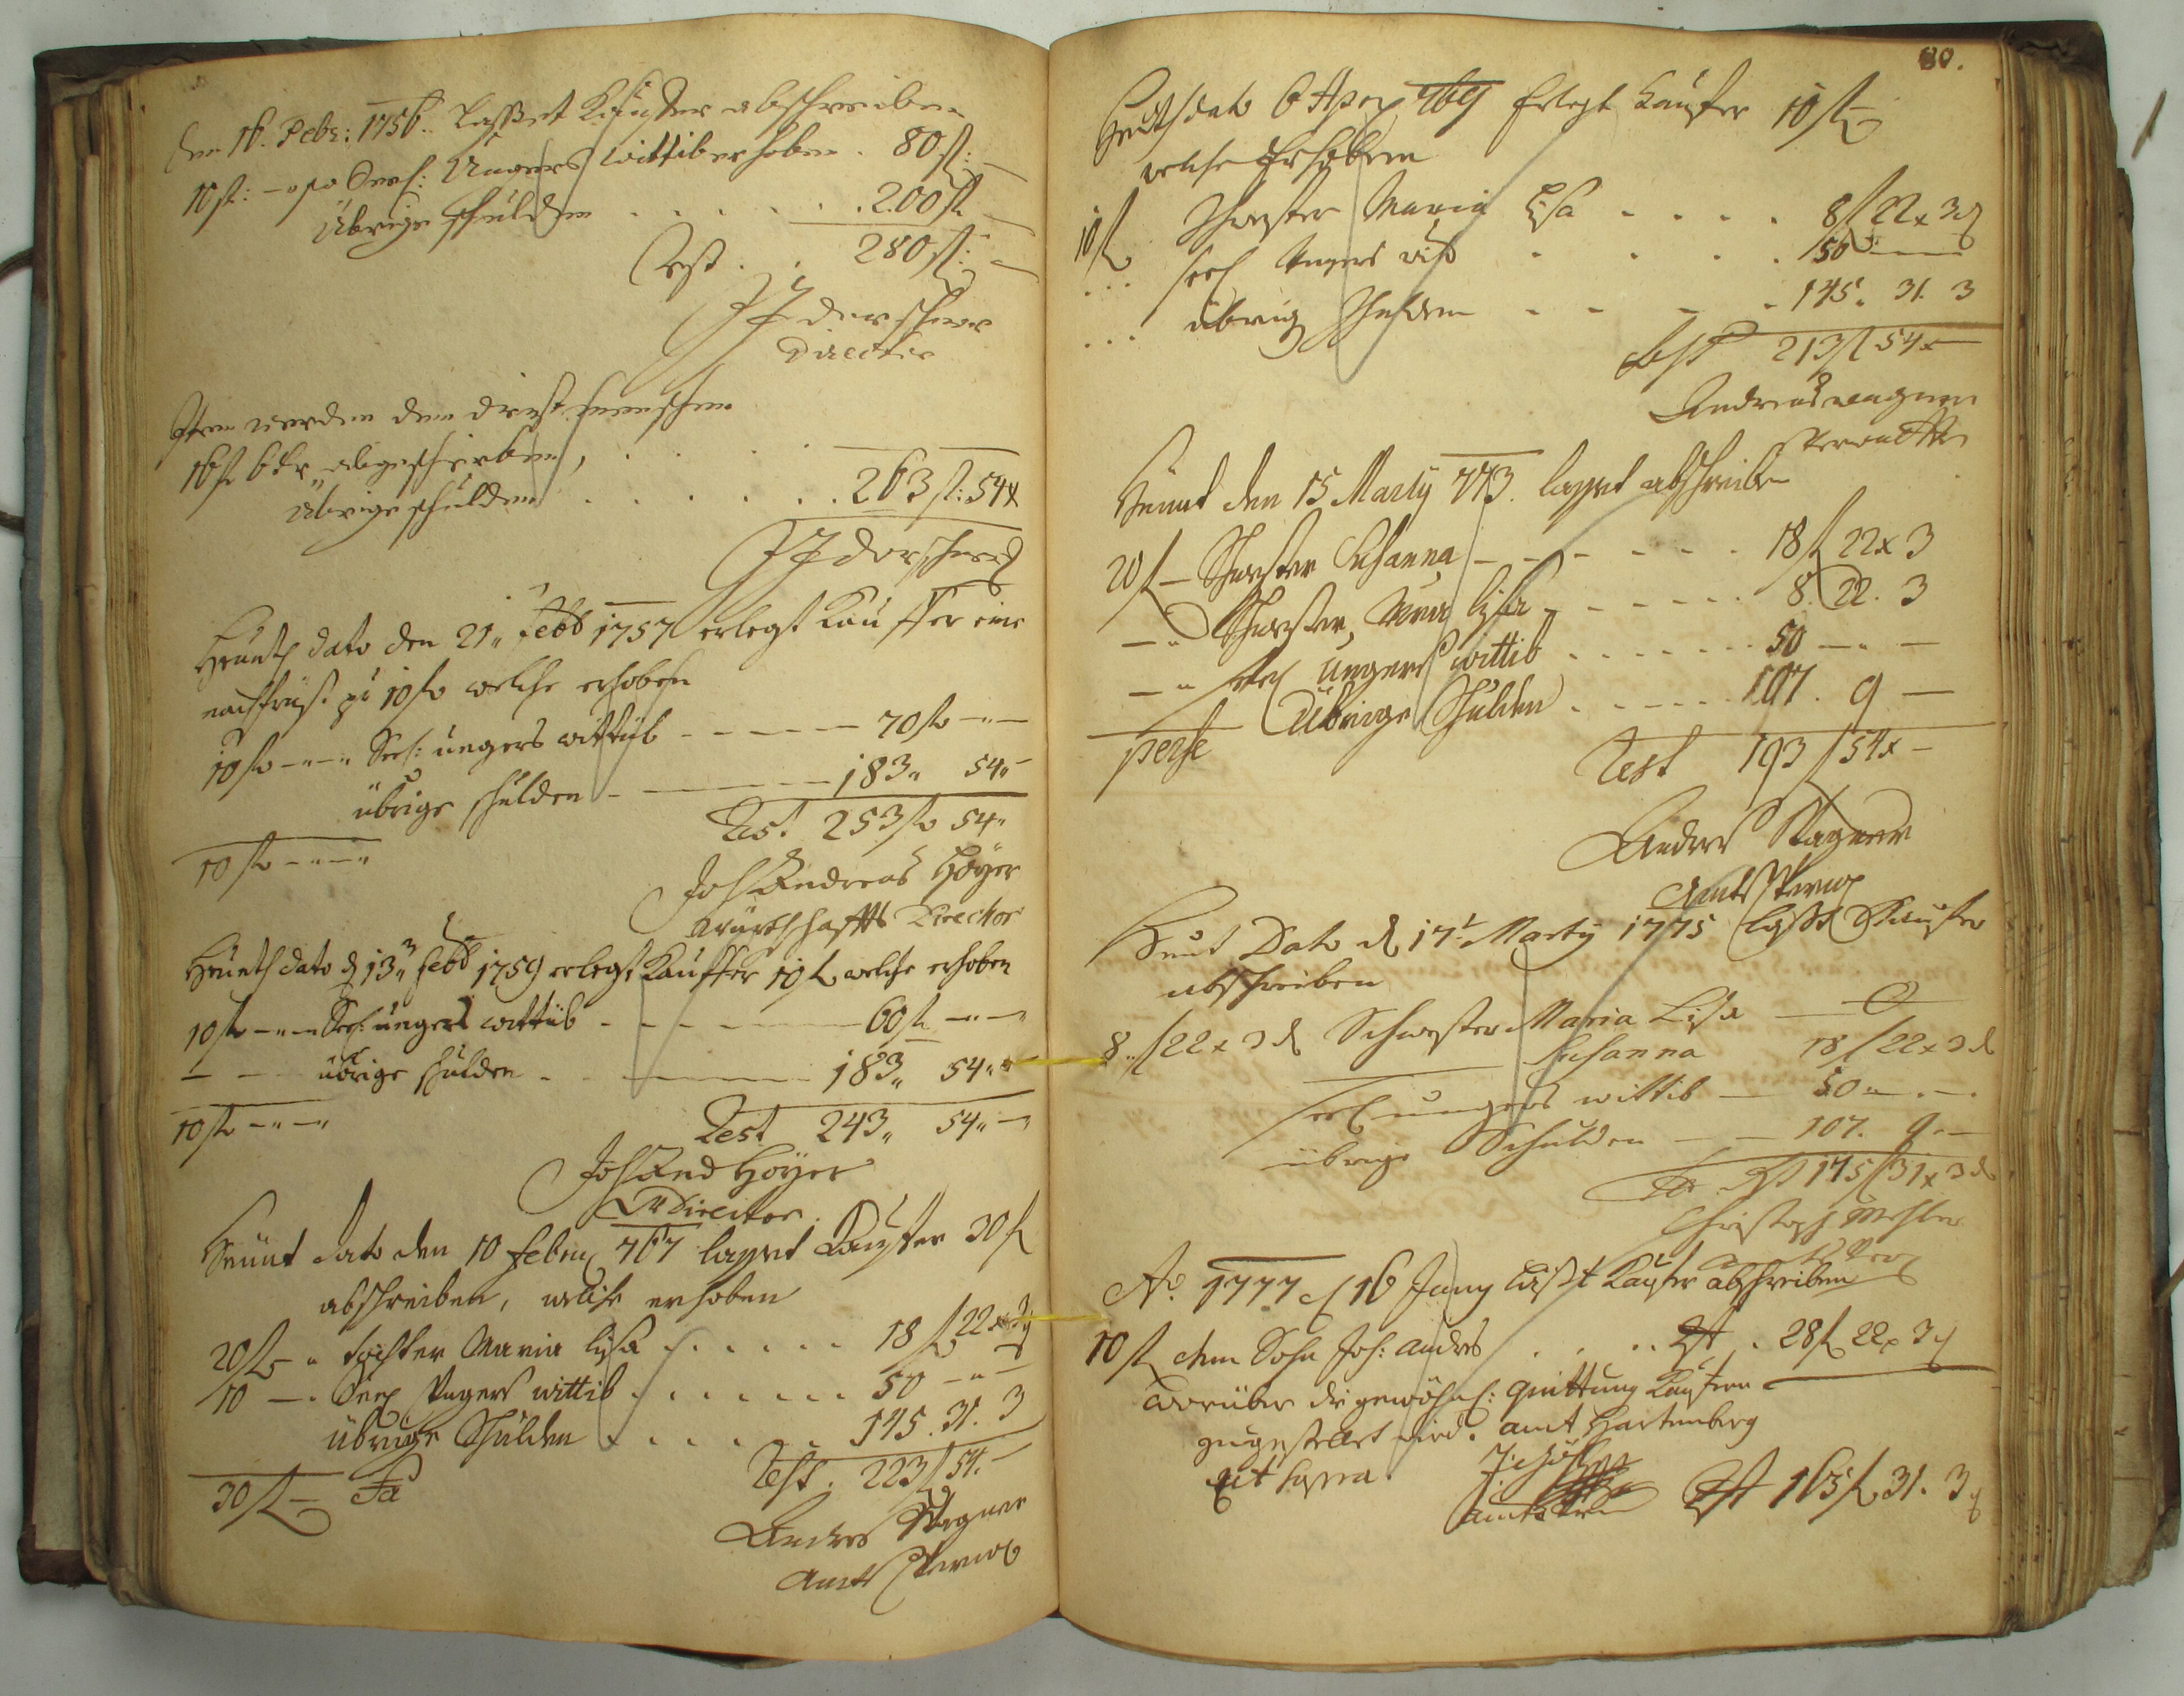 den 16. Febr: 1756. lasset Kauffer abschreiben
10 fl: Seel: Ungers wittib erhoben . 80 fl:
übrige schulden . . . . . . 200 fl
Rest . . 280 fl:
Director
Item werden dem
16 fl 6 xr abgeschrieben,
übrige schulden . . . . . . 263 fl: 54 x
Heuth dato den 21 Febr 1757 erlegt Kauffer eine
nachfrist pr 10 fl welche erhoben
10 fl Seel: ungers wittib 70 fl
übrige schulden 183 54
Rest 253 fl 54
10 fl
Joh Andreas Hoyer
würthschaffts Director
Heuth dato d 13 Febr 1759 erlegt Kauffer 10 fl welche erhoben
10 fl Seel: ungers wittib 60 fl
übrige schulden 183 54
10 fl Rest 243 54
Joh And Hoyer
Director
Heunt dato den 10 Febru 767 lasset Kauffer 30 fl
abschreiben, welche erhoben
20 fl tochter Maria lisa . . . . . 18 fl 22 x 3
10 Seel Ungers wittib . . . . . . 50
übrige Schulden . . . . . . 145. 31. 3
Rest . 223 fl 54
30 fl
Andres Wagner
Amts Verw
80.
Heuth dato 6 769 Erlegt Kauffer 10 fl
welche Erhoben
10 fl Schwester Maria Lisa . . . . 8 fl 22 x 3
Seel Ungers wittib . . . . 
übrig Schulden . . . . . 145. 31. 3
Rest 213 fl 54 x
Andreas wagner
Verwalter
Heunt den 15 Marty 773. lasset abschreiben
20 fl Schwester Susanna 18 fl 22 x 3
Schwester, Maria lisa 8. 22. 3
Seel Ungers wittib . . . . . 50
übrige Schulden . . . . . 107. 9
Rest 193 fl 54 x
Andres Wagner
Amts Verw
Heut Dato d 17 Marty 1775 lasst Kauffer
abschreiben
8 fl 22 x 3 d Schwester Maria Lisa 0
Susanna 18 fl 22 x 3 d
Seel ungers wittib 50
übrige Schulden 107. 9
Rest 175 fl 31 x 3 d
Christoph
Ao. 1777 d 16 Juny läßt Kaufer abschreiben
10 fl dem Sohn Joh: Andres . . . . Rst . 28 fl 22 x 3 d
worüber die gewöhnl: quittung Kaufern
zugestellt wird. Amt Hartenberg
ut supra.
Rst 165 fl 31. 3 d